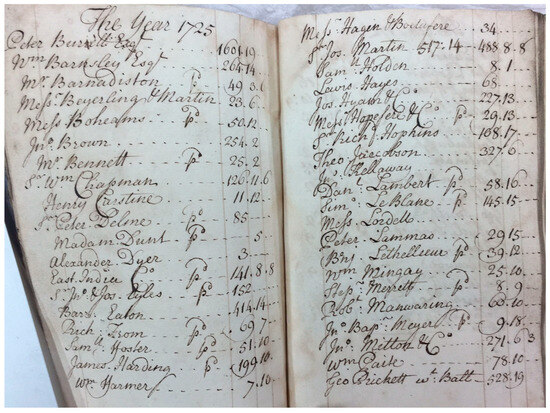 The Year 1725
Peter Bennett Esqr 1601.19
Wm Barnsley Esqr 265.14
Mr. Barnadiston pd 49.8.6
Messrs Beyerling & Martin 23.6
Mess Boheams pd 50.12
Jno. Brown 254.2
Mr. Bennett pd 25.2
Sr Wm Chapman 126.11.6
Henry Carstine 11.12
Sr Peter Delme pd 85
Madam Dunt pd 5
Alexander Dyer 3
East India Co pd 141.8.8
Sr Jno & Jos. Eyles pd 152
Bars. Eaton 414.14
Rich: From pd 69.7
Saml Foster pd 51.10
James Harding pd 199.10
Wm Harmer 7.10
Messrs Hagen & 34
Sr Jos. Martin 517:14 488.8.8
Saml Holden 8.1
Lewis Hayes 68
Jos Hyam & Co 227.13
Messrs & Co pd 29.13
Sr Richd Hopkins 108.17
Theo Jacobson 327.6
Jno Kellaway
Danl Lambert pd 58.16
Simo. LeBlanc pd 145.15
Mess. Lordell
Peter Lammas 29.15
Bnj. Lethellieur pd 39.12
Wm Mingay 25.10
Step: Merrett pd 8.9
Robt Manwaring 60.10
Jno. Bap: Meyer pd 9.18
Jno. Metton & Co 271.6.3
Wm Paite 78.10
Geo Prickett wt. Balt 528.19